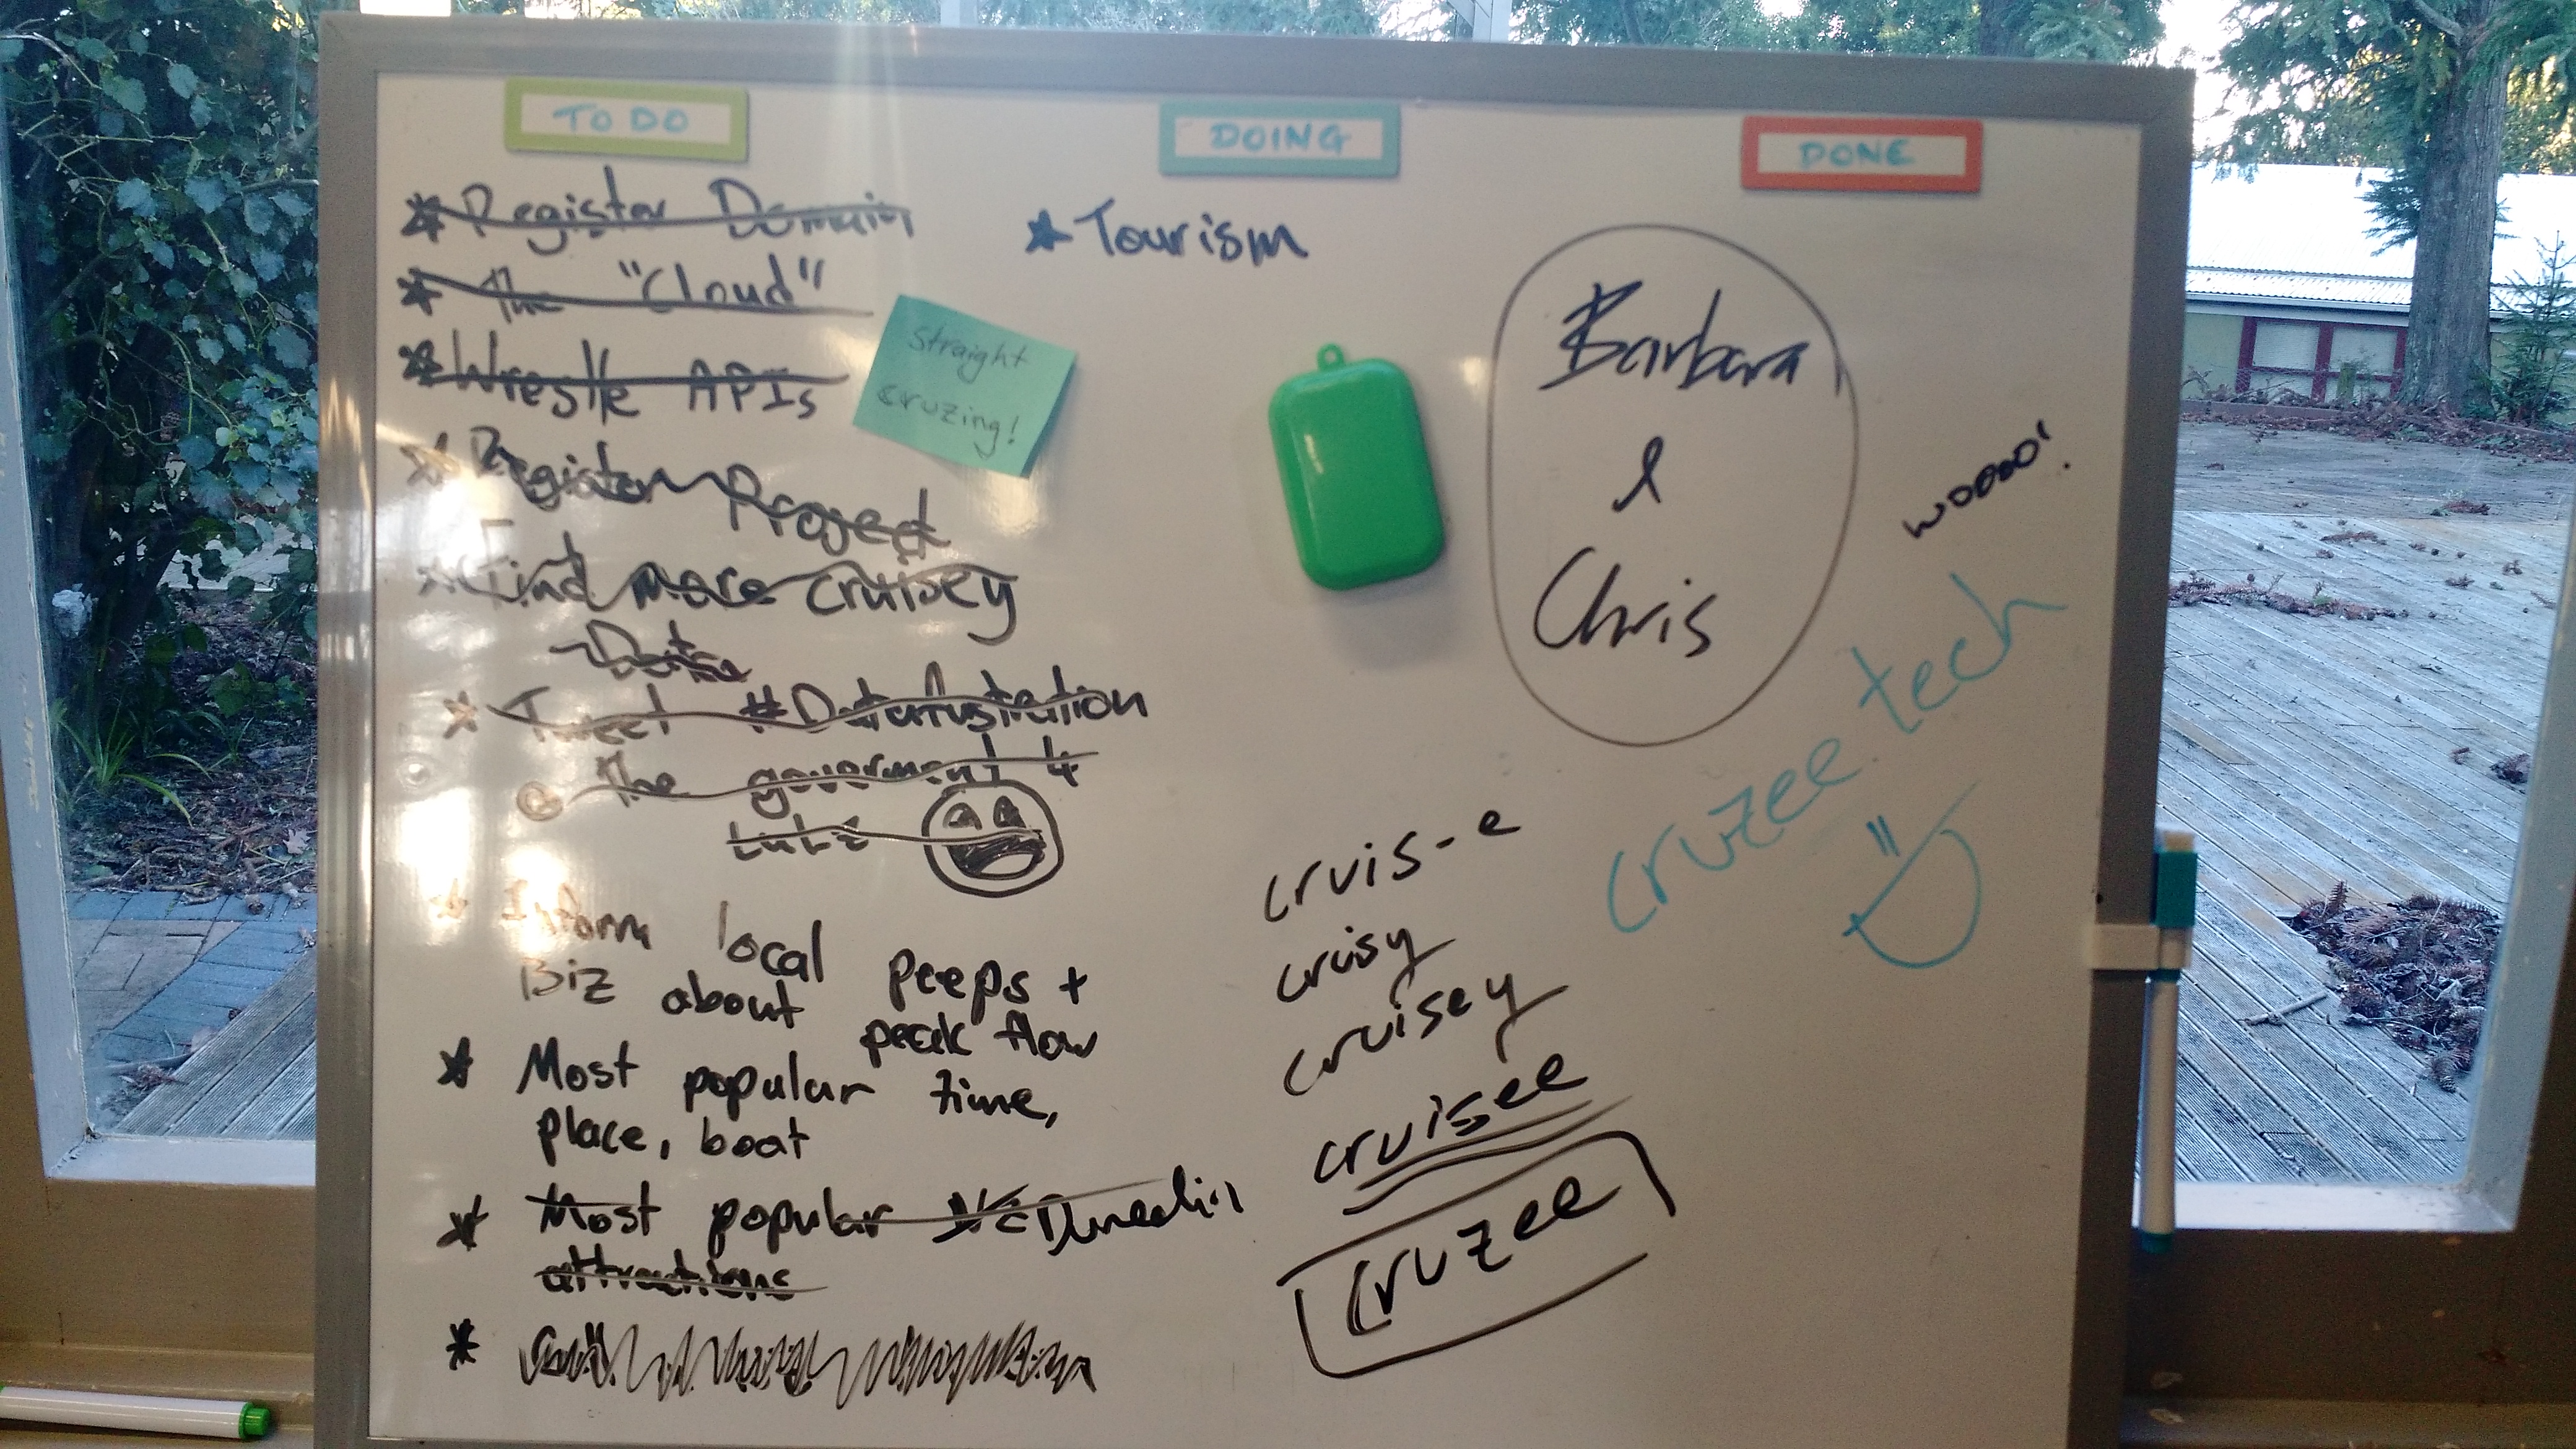 TO DO
* Register Domain
* The "Cloud"
* Wrestle APIs
* Register Project
* Find more cruisey
Data
* Tweet #Datafustration
@ The goverment 4
LULZ
* Inform local peeps +
Biz about peak flow
* Most popular time,
place, boat
* Most popular Dunedin
attractions
*
straight
cruzing!
DOING
* Tourism
cruis-e
cruisy
cruisey
cruisee
cruzee
DONE
Barbara
&
Chris
woooo!
cruzee.tech